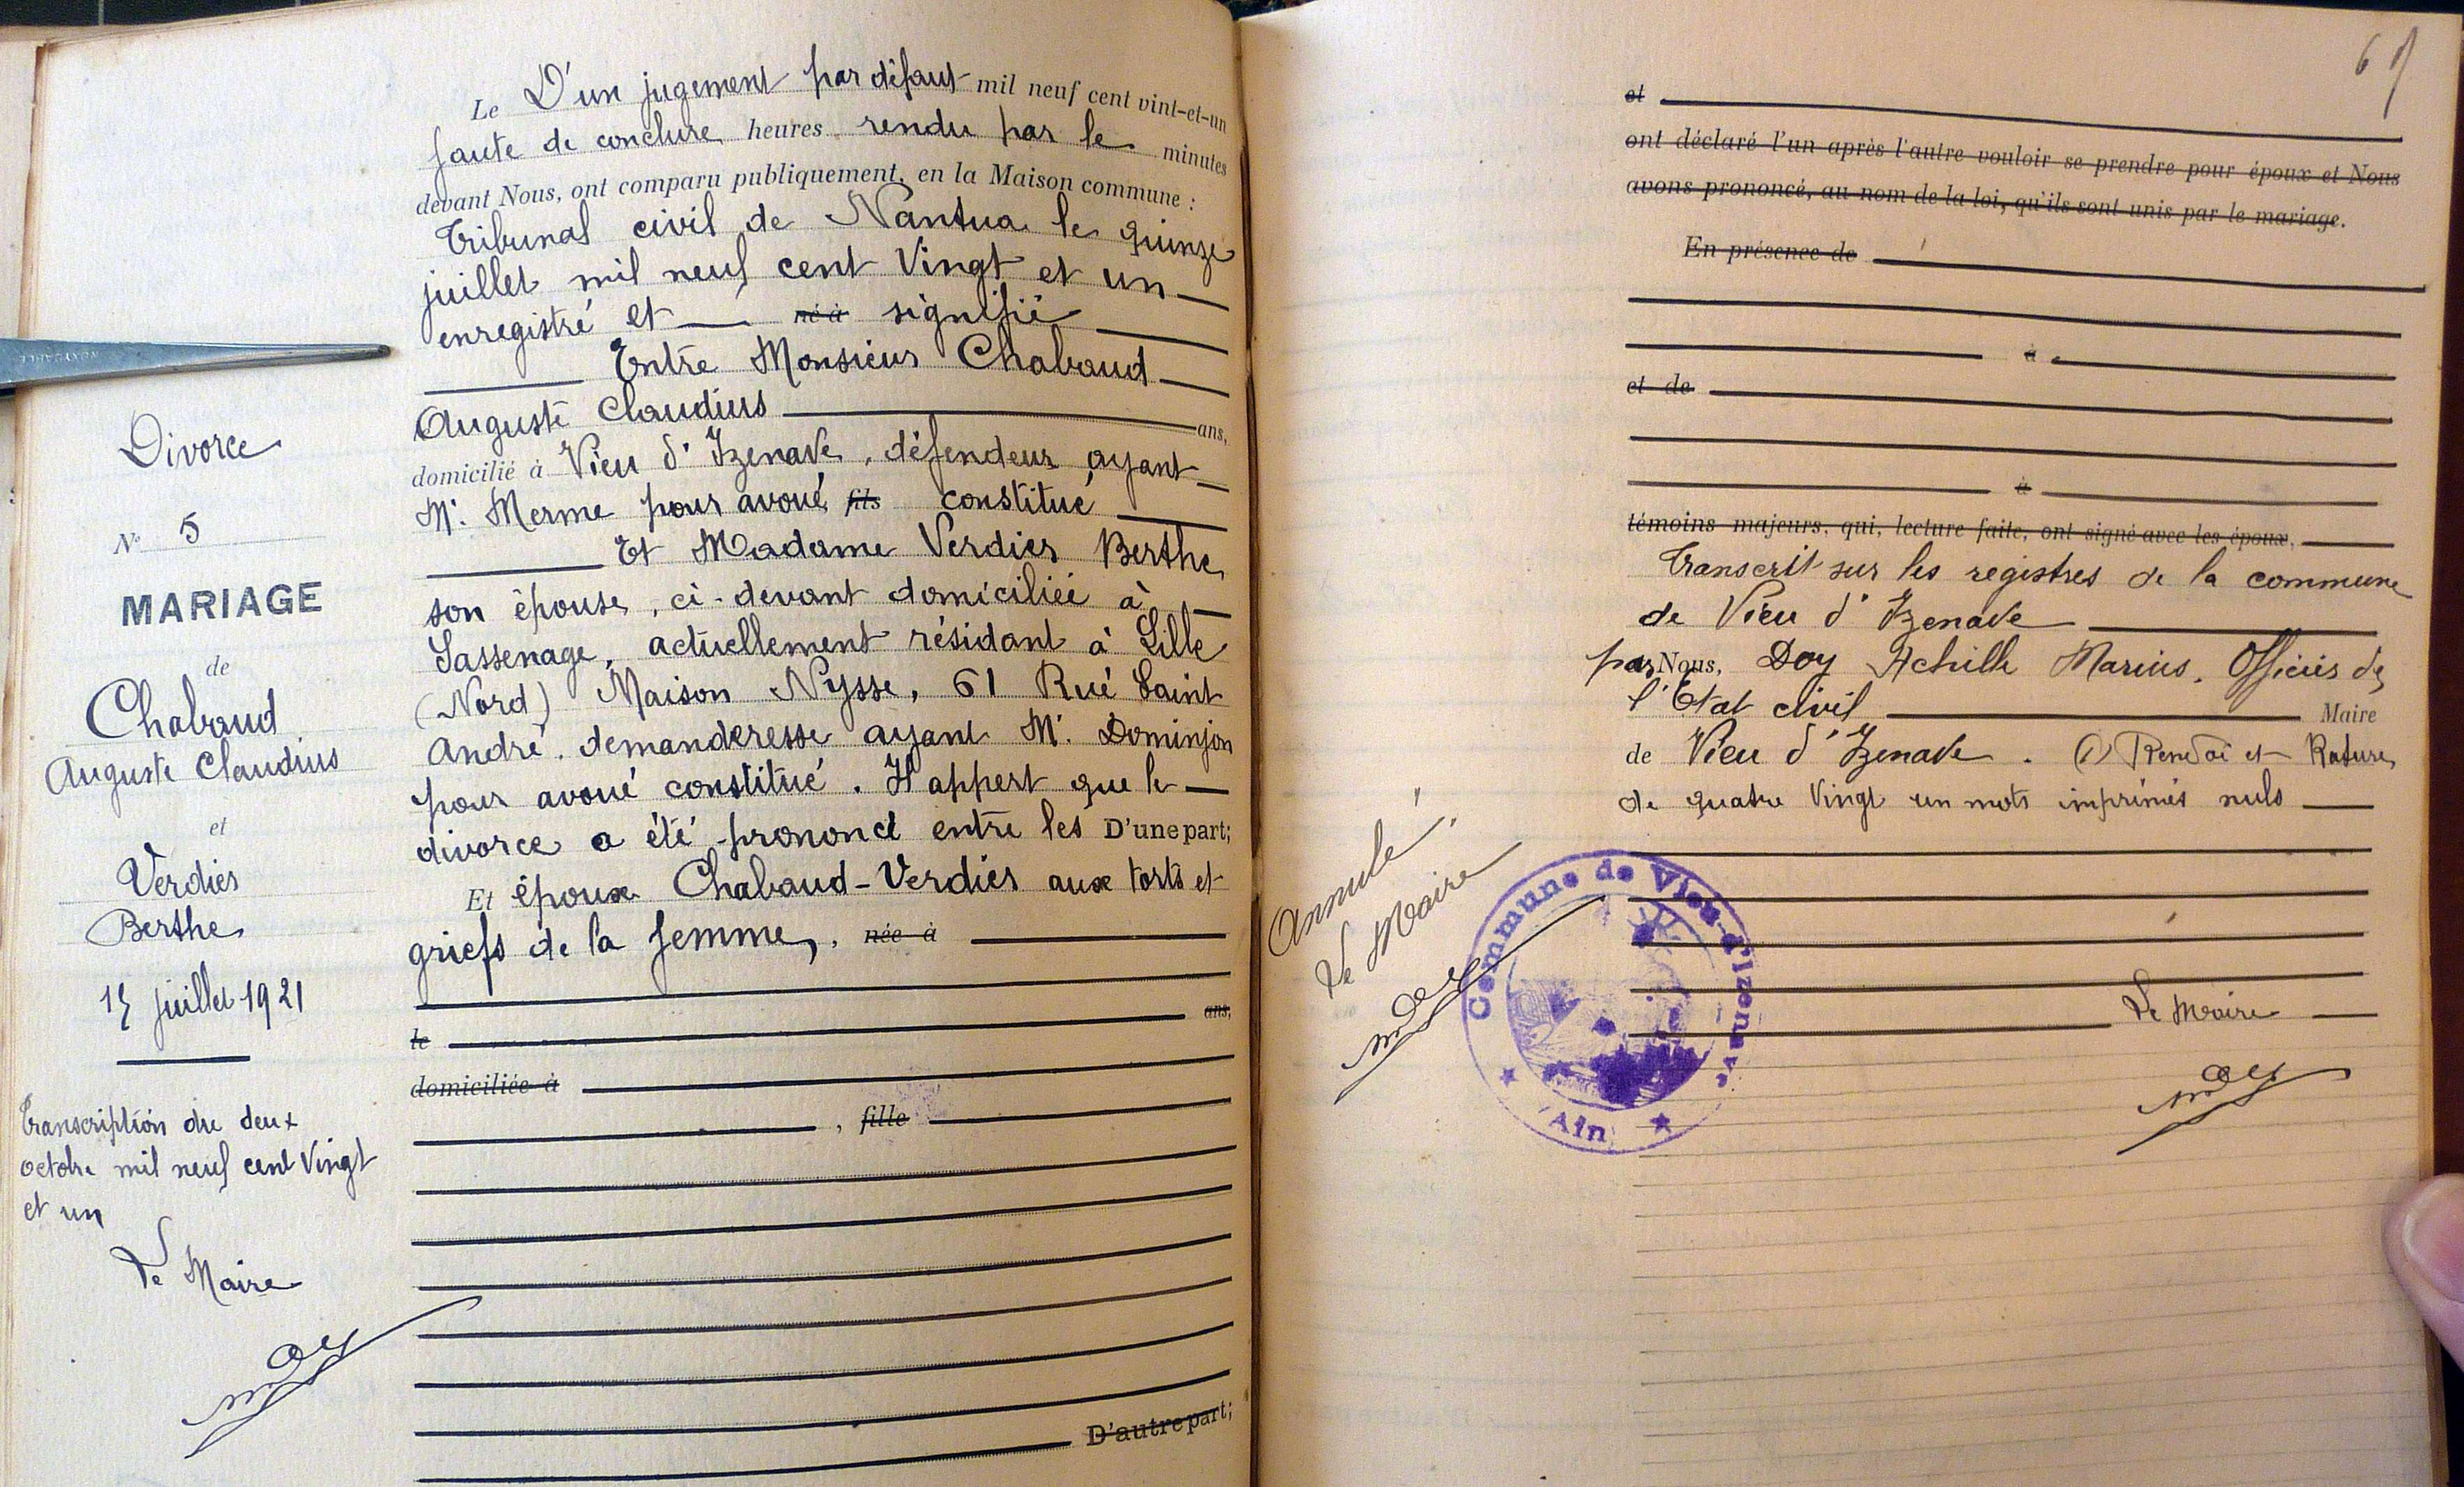 Le D'un jugement par défaut mil neuf cent vint-et-un
faute de conclure heures rendu par le minutes
devant Nous, ont comparu publiquement, en la Maison commune :
Tribunal civil de Nantua le quinze
juillet mil neuf cent vingt et un
enregistré et né à signifié
Entre Monsieur Chabaud
Auguste Claudius ans,
domicilié à Vieu d'Izenave, défendeur ayant
Mr. Merme pour avoué fils constitué
Et Madame Verdier Berthe
son épouse, ci-devant domiciliée à
Sassenage, actuellement résidant à Lille
(Nord) Maison Nysse, 61 Rue Saint
André. demanderesse ayant Mr. Dominjon
pour avoué constitué. Il appert que le
divorce a été prononcé entre les D'une part;
Et époux Chabaud-Verdier aux torts et
griefs de la femme, née à
le ans,
domiciliée à
, fille
D'autre part;
Divorce
N° 5
MARIAGE
de
Chabaud
Auguste Claudius
et
Verdier
Berthe
15 juillet 1921
Transcription du deux
octobre mil neuf cent vingt
et un
Le Maire
65
et
ont déclaré l'un après l'autre vouloir se prendre pour époux et Nous
avons prononcé, au nom de la loi, qu'ils sont unis par le mariage.
En présence de
à
et de
à
témoins majeurs, qui, lecture faite, ont signé avec les époux,
Transcrit sur les registres de la commune
de Vieu d'Izenave
par Nous, Doy Achille Marius. Officier de
l'Etat civil Maire
de Vieu d'Izenave. (1) Renvoi et Rature
de quatre vingt un mots imprimés nuls
Annulé
Le Maire
Commune de Vieu-d'Izenave
(Ain)
Le Maire